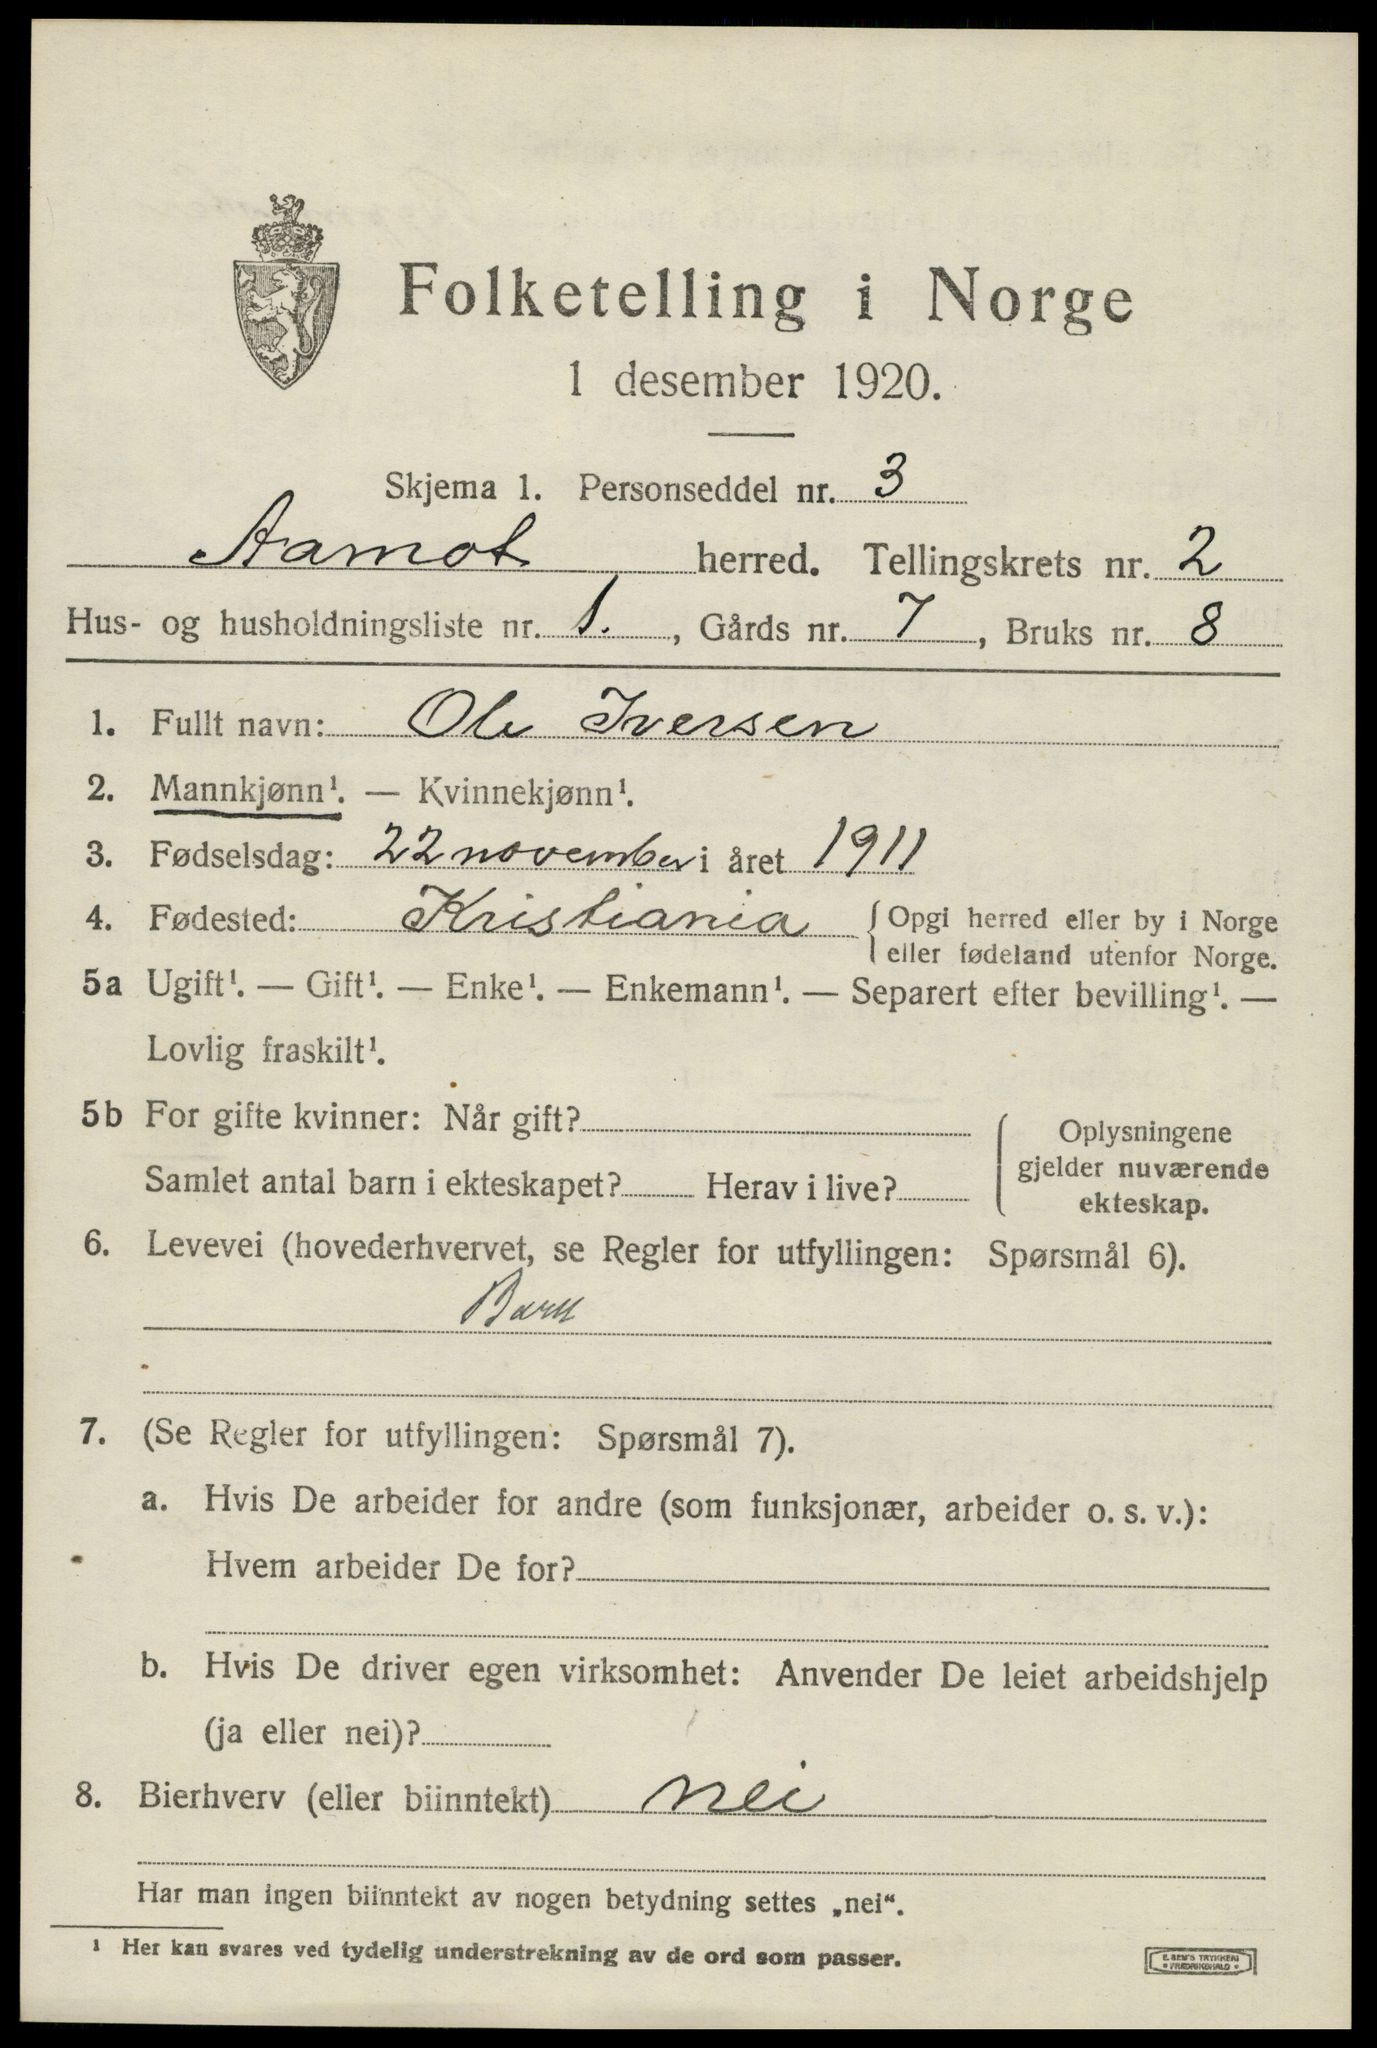 Folketelling i Norge
1 desember 1920.
Skjema 1. Personseddel nr. 3
Aamot herred. Tellingskrets nr. 2
Hus- og husholdningsliste nr. 1., Gårds nr. 7, Bruks nr. 8
1. Fullt navn: Ole Iversen
2. Mannkjønn¹. — Kvinnekjønn¹.
3. Fødselsdag: 22 november i året 1911
4. Fødested: Kristiania { Opgi herred eller by i Norge
eller fødeland utenfor Norge.
5a Ugift¹. — Gift¹. — Enke¹. — Enkemann¹. — Separert efter bevilling¹. —
Lovlig fraskilt¹.
5b For gifte kvinner: Når gift?
Samlet antal barn i ekteskapet? Herav i live?
Oplysningene
gjelder nuværende
ekteskap.
6. Levevei (hovederhvervet, se Regler for utfyllingen: Spørsmål 6).
Barn
7. (Se Regler for utfyllingen: Spørsmål 7).
a. Hvis De arbeider for andre (som funksjonær, arbeider o. s. v.):
Hvem arbeider De for?
b. Hvis De driver egen virksomhet: Anvender De leiet arbeidshjelp
(ja eller nei)?
8. Bierhverv (eller biinntekt) nei
Har man ingen biinntekt av nogen betydning settes „nei“.
¹ Her kan svares ved tydelig understrekning av de ord som passer.
E. SEM'S TRYKKERI
• FREDRIKSHALD •